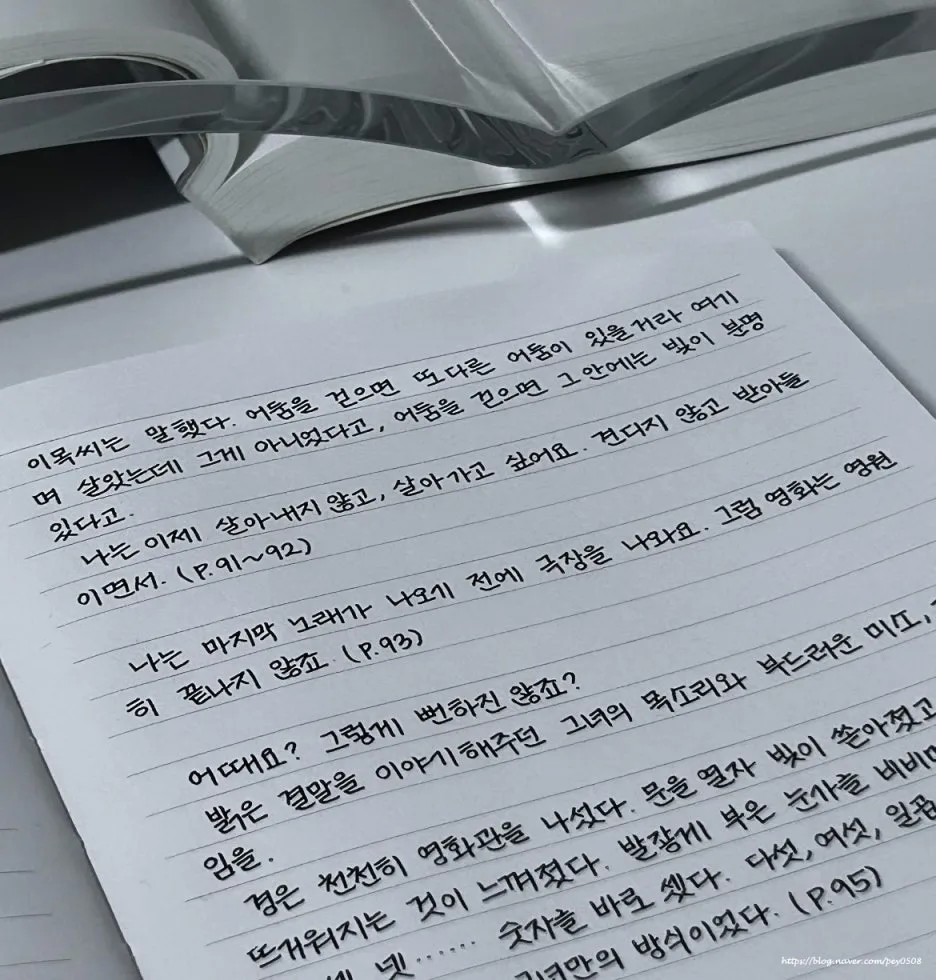 이목씨는 말했다. 어둠을 걷으면 또다른 어둠이 있을거라 여기
며 살았는데 그게 아니었다고, 어둠을 걷으면 그안에는 빛이 분명
있다고.
나는 이제 살아내지 않고, 살아가고 싶어요. 견디지 않고 받아들
이면서. (P.91~92)
나는 마지막 노래가 나오기 전에 극장을 나와요. 그럼 영화는 영원
히 끝나지 않죠. (P.93)
어때요? 그렇게 뻔하진 않죠?
밝은 결말을 이야기해주던 그녀의 목소리와 부드러운 미소,
임을.
경은 천천히 영화관을 나섰다. 문을 열자 빛이 쏟아졌고
뜨거워지는 것이 느껴졌다. 발갛게 부은 눈가를 비비며
넷...... 숫자를 바로 셌다. 다섯, 여섯, 일곱
그녀만의 방식이었다. (P.95)
https://blog.naver.com/pey0508